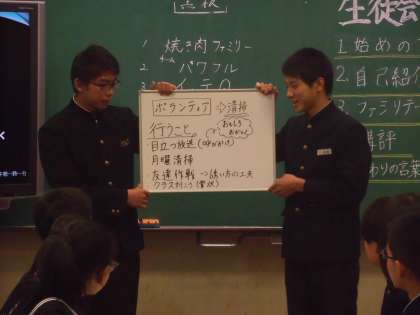 点検
1 焼き肉ファミリー
2 パワフル
3
生徒会
1.始めの
2.自己紹
3.ファシリテ
講評
わりの言葉
ボランティア →清掃
行うこと。
おもしろ
おかしく
・目立つ放送(呼びかけ)
・月曜清掃
・友達作戦→誘い方の工夫
クラスマッチ(賞状)